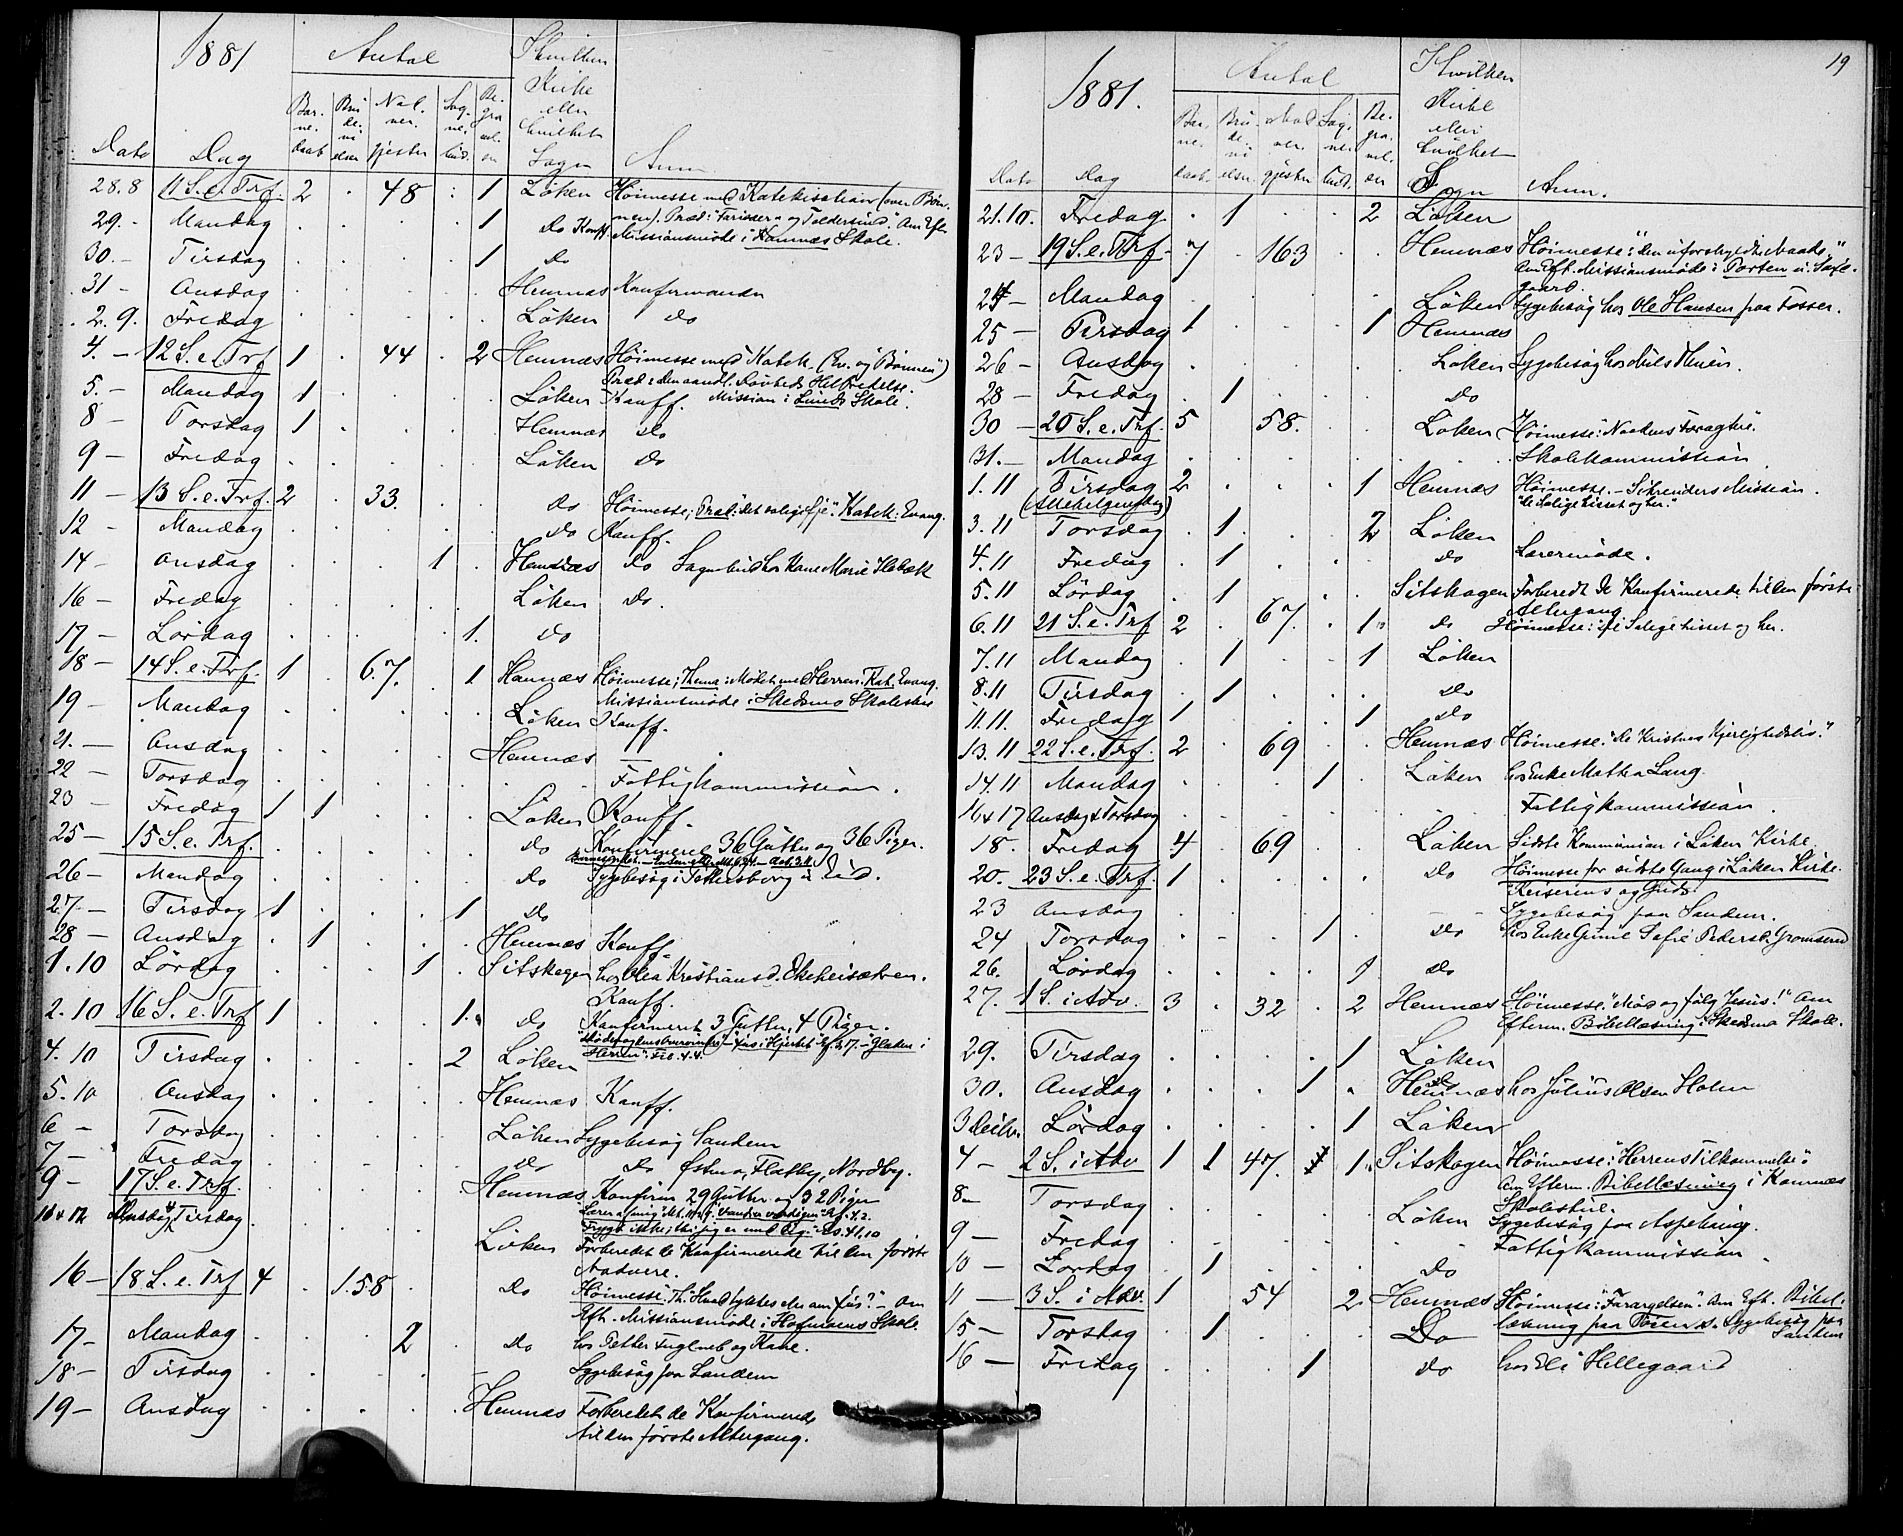 1881
Antal
Hvilken Kirke eller hvilket Sogn
Dato Dag Barnedaab Brudevielser Nadvergjester Sognebud Begravelsen Anm.
28.8 11 S. e. Trf. 2 . 48 . 1 Löken Höimesse med Katekisation (over Bön-
nen). Præd: "Farisæer" og Toldersind". Am Eft.
29.- Mandag . . . . 1 Do Konff. Missionsmöde i Kamnæs Skole.
30.- Tirsdag . . . . 1 Do
31 - Onsdag . . . . . Hemnæs Konfirmander
2. 9. Fredag . . . . . Löken Do
4. - 12 S. e. Trf 1 . 44 . 2 Hemnæs Höimesse med Katek. (Ev. og Bönnen)
Præd: den aandl. Dövheds Helbredelse.
5.- Mandag 1 . . . . Löken Konff. Mission i Lunds Skole.
8- Torsdag 1 . . . . Hemnæs Do
9 - Fredag . . . . . Löken Do
11 - 13 S. e. Trf. 2 . 33. . . Do Höimesse; Præd: det salige Öje". Katek: Evang.
12 - Mandag . . . . . Do Konff.
14 - Onsdag . . . 1 . Hemnæs Do Sognebud hos Kone Marie
16 - Fredag . . . . . Löken Do.
17 - Lördag . . . . 1. Do
18 - 14 S. e. Trf. 1 . 67. . 1 Hemnæs Höimesse; Thema: Mödet med Herren. Kat. Evang.
Missionsmöde i Skedsmo Skolestue
19 - Mandag . . . . . Löken Konff.
21. - Onsdag . . . . . Hemnæs —
22 - Torsdag . . . . . Fattigkommission.
23 - Fredag 1 1 . . . Löken Konff.
25 - 15 S. e. Trf. . . . . . Do Konfirmeret 36 Gutter og 36 Piger.
26 - Mandag . . . . . Do Sygebesög i Pettersborg
27 - Tirsdag 1 . . . 1 Do
28 - Onsdag . 1 . . . Hemnæs Konff.
1.10 Lördag . . . 1 . Sitskogen hos Olea Kristiansd.
Konff.
2.10 16 S. e. Trf 1 . . . 1. Do Konfirmeret 3 Gutter, 4 Piger.
Herren". Fil. 4.4.
4.10 Tirsdag . . . . 2 Löken
5.10 Onsdag . . . . . Hemnæs Konff.
6 - Torsdag . . . . . Löken Sygebesög Sandem
7 - Fredag . . . . . Do Do Østmo, Flatby, Nordby.
9 - 17 S. e. Trf. . . . . . Hemnæs Konfirm 29 Gutter og 32 Piger
Frygt ikke; thi jeg er med dig". Es. 41.10
Tirsdag Löken Forberedet de Konfirmerede til den förste
Nadvere.
16 - 18 S. e. Trf 4 . 158 . Do Höimesse. Th: Hvad tykkes eder om Kris?" - Om
Eft. Missionsmöde i Hofmoens Skole.
17 - Mandag . . . 2 . Do hos Petter Fuglneb og Kone.
18 - Tirsdag . . . . . Sygebesög paa Sandem
19 - Onsdag . . . . . Hemnæs Forberedet de Konfirmerede
til den förste Altergang.
19
1881.
Antal
Hvilken Kirke eller hvilket Sogn
Dato Dag Barnedaab Brudevielser Nadvergjester Sognebud Begravelsen Anm.
21.10. Fredag . 1 . . 2 Löken
23 - 19 S. e. Trf. 7 . 163 . . Hemnæs Höimesse: "Den uforskyldte Naade".
Om Eft. Missionsmöde i Torsen
24 - Mandag . . . . . Löken Sygebesög hos Ole Hansen paa Fosser.
25 - Tirsdag 1 . . . 1 Hemnæs
26 - Onsdag . . . . . Löken Sygebesög hos Nils Thuen.
28 - Fredag . 1 . . . Do
30 - 20 S. e. Trf. 5 58. . . Löken Höimesse: Naadens Foragtere.
31. - Mandag . . . . . Skolekommission
1.11 Tirsdag 2 . . . 1 Hemnæs Höimesse. -
(Allehelgensdag) "De Salige hisset og her."
3.11 Torsdag . 1 . . 2 Löken
4.11 Fredag . 1 . . . Do Lærermöde.
5.11 Lördag . 1 . . Sitskogen Forberedt de Konfirmerede til den förste
Altergang
6.11 21 S. e. Trf 2 . 67. . 1. Do Höimesse: "De Salige hisset og her.
7.11 Mandag . 1 . . 1 Löken
8.11 Tirsdag . 1 . . . Do
11.11. Fredag 1 . . . 1 Do
13.11 22 S. e. Trf. 2 . 69 . . Hemnæs Höimesse. "De Kristnes Kjerlighedsliv".
14.11 Mandag . . . 1 . Löken hos Enke Mathea Lang.
16 & 17 Onsdag & Torsdag . . . . . Fattigkommission.
18. Fredag 4 . 69 . . Löken Sidste Kommunion i Löken Kirke.
20. 23 S. e. Trf. 1 . . . . Do Höimesse for sidste Gang i Löken Kirke.
"Keiserens og Guds".
23 Onsdag . . . . . - - Sygebesög paa Sandem.
24 Torsdag . . . 1 . Do hos Enke Gunil Sofie Pedersd. Gromsrud
26. Lördag . . . . 1 Do
27. 1 S. i Adv. 3 . 32 . 2 Hemnæs Höimesse. "Mód og følg Jesus!" Om
Efterm. Bibellæsning i Skedsmo Skole.
29. Tirsdag . . . . 1 Löken
30. Onsdag . . . 1 . Hemnæs hos Julius Olsen Holen
3 Decbr. Lördag . . . . 1 Löken
4 - 2 S. i Adv 1 1 47. 1. Sitskogen Höimesse: "Herrens Tilkommelse".
Om Efterm. Bibellæsning i Kamnæs
Skolestue.
8- Torsdag . . . . . Löken Sygebesög paa Aspehaug.
9 - Fredag . . . . . Fattigkommission.
10 - Lördag . 1 . . . Do
11 - 3 S. i Adv. 1 54 . 2 Hemnæs Höimesse: "Forargelsen". Om Eft. Bibel-
læsning paa Sygebesög paa
Sandem
15 - Torsdag . 1 . . . Do
16 - Fredag . . . 1 Do hos Eli Hillegaard